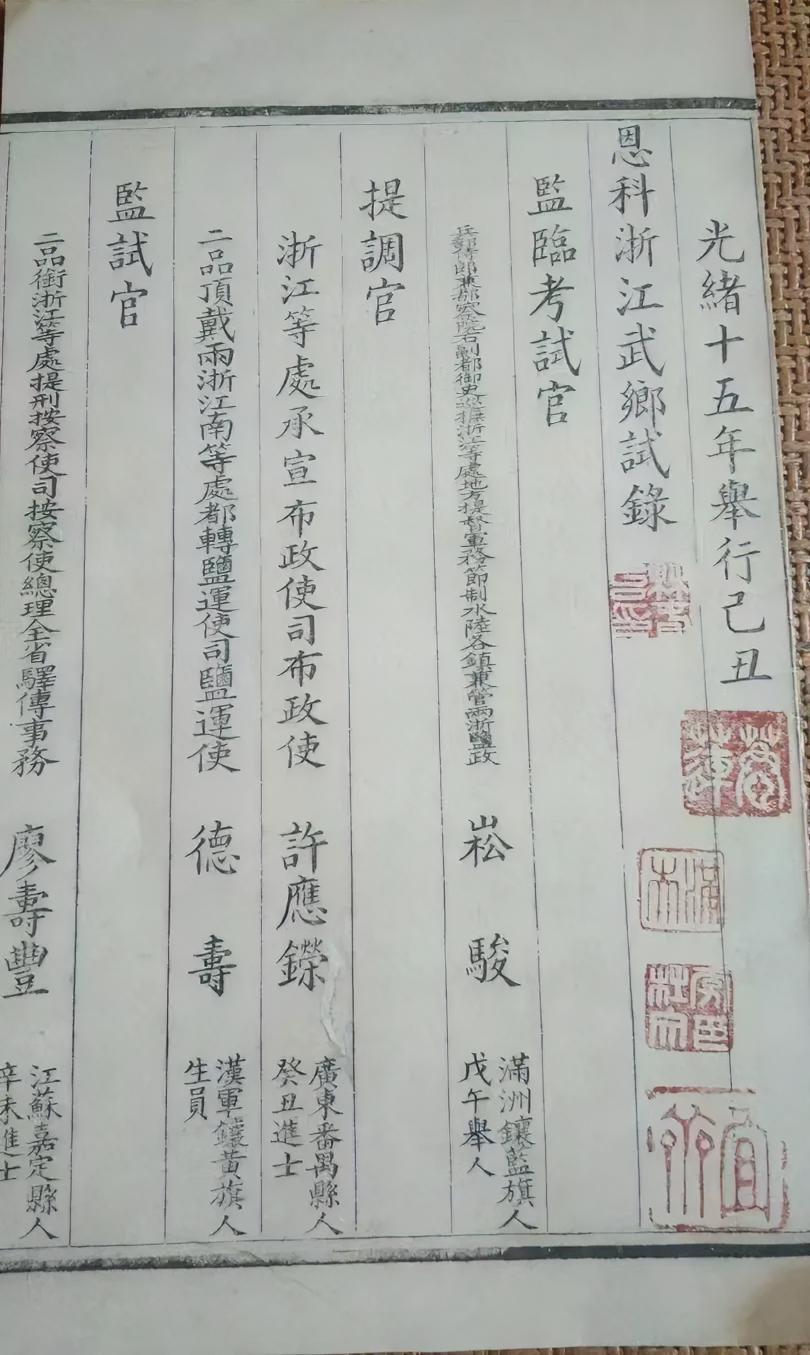 光緒十五年舉行己丑
恩科浙江武鄉試錄
監臨考試官
兵部侍郎兼都察院右副都御史巡撫浙江等處地方提督軍務節制水陸各鎮兼管兩浙鹽政 崧駿 滿洲鑲藍旗人 戊午舉人
提調官
浙江等處承宣布政使司布政使 許應鑅 廣東番禺縣人 癸丑進士
二品頂戴兩浙江南等處都轉鹽運使司鹽運使 德壽 漢軍鑲黃旗人 生員
監試官
二品銜浙江等處提刑按察使司按察使總理全省驛傳事務 廖壽豐 江蘇嘉定縣人 辛未進士